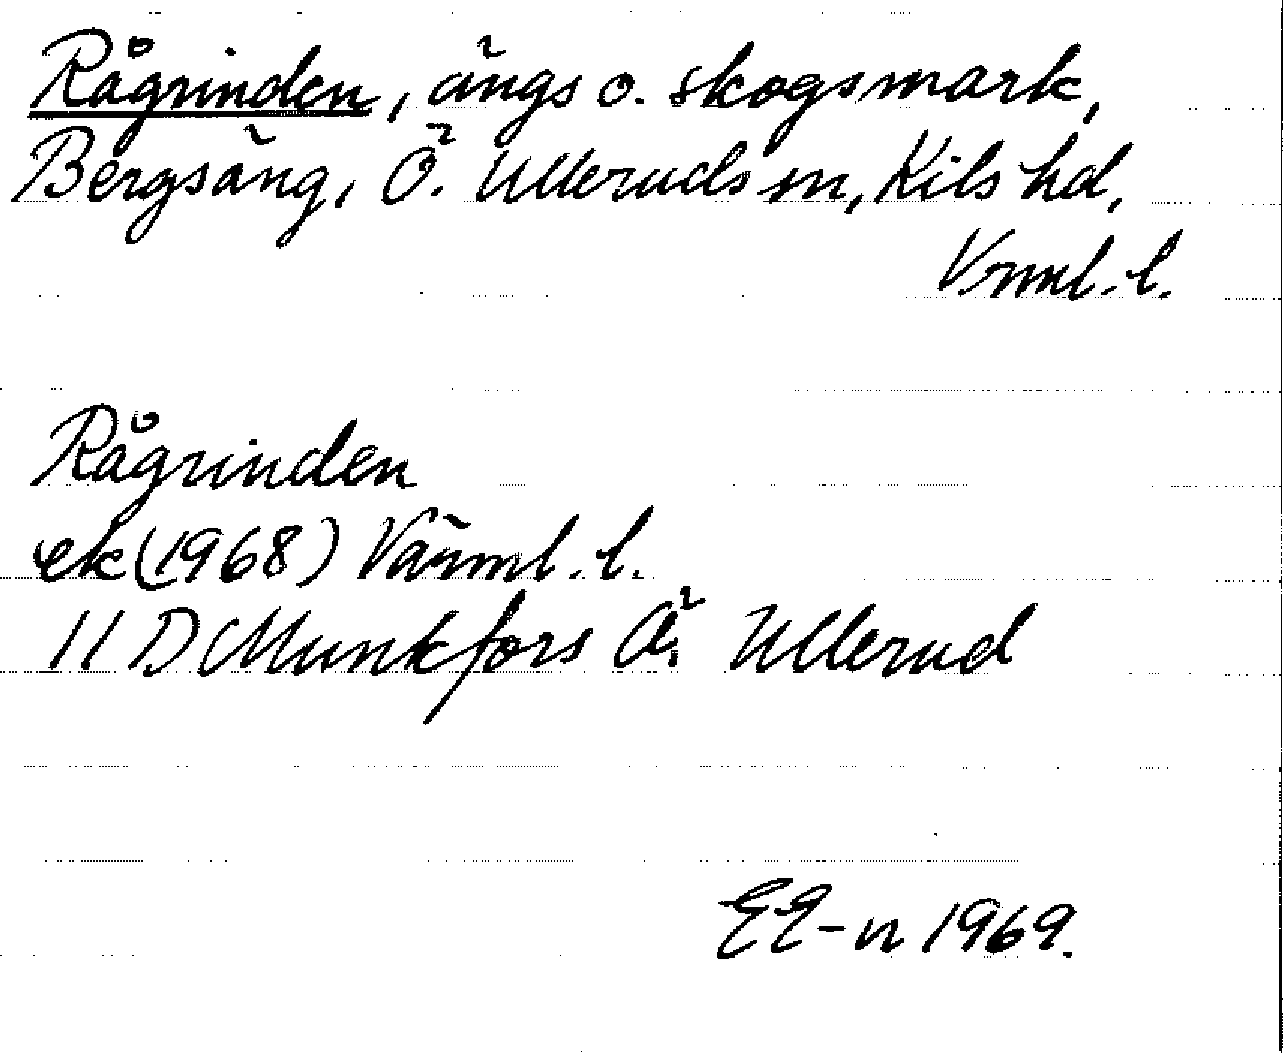 Rågrinden, ängs o. skogsmark,
Bergsäng, Ö. Ullerud sn, Kils hd,
Vrml. l.
Rågrinden
ek (1968) Värml. l.
11 D Munkfors Ö. Ullerud
EE-n 1969.